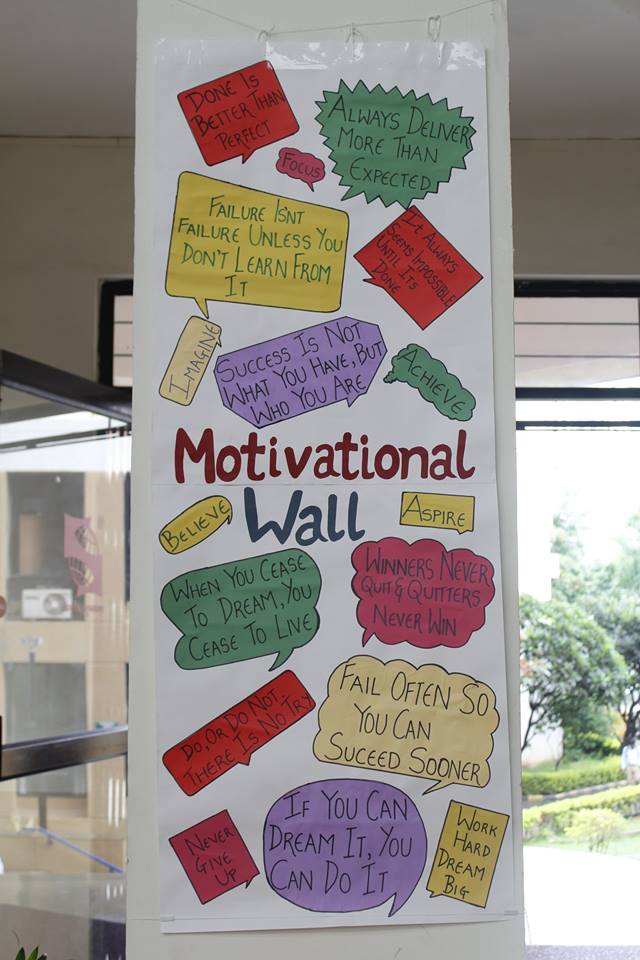 DONE IS
BETTER THAN
PERFECT
ALWAYS DELIVER
MORE THAN
EXPECTED
FOCUS
FAILURE ISN'T
FAILURE UNLESS YOU
DON'T LEARN FROM
IT
IT ALWAYS
SEEMS IMPOSSIBLE
UNTIL ITS
DONE
IMAGINE
SUCCESS IS NOT
WHAT YOU HAVE, BUT
WHO YOU ARE
ACHIEVE
Motivational
Wall
BELIEVE
ASPIRE
WHEN YOU CEASE
TO DREAM, YOU
CEASE TO LIVE
WINNERS NEVER
QUIT & QUITTERS
NEVER WIN
DO, OR DO NOT.
THERE IS NO TRY
FAIL OFTEN SO
YOU CAN
SUCEED SOONER
NEVER
GIVE
UP
IF YOU CAN
DREAM IT, YOU
CAN DO IT
WORK
HARD
DREAM
BIG